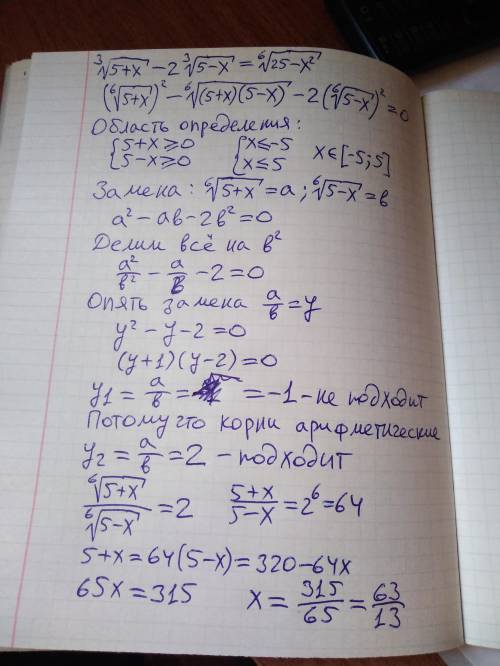 ∛(5+x) − 2∛(5−x) = ⁶√(25−x²)
(⁶√(5+x))² − ⁶√((5+x)(5−x)) − 2(⁶√(5−x))² = 0
Область определения:
{5+x ≥ 0 {x ≤ −5 x ∈ [−5; 5]
{5−x ≥ 0 {x ≤ 5
Замена: ⁶√(5+x) = a ; ⁶√(5−x) = в
a² − aв − 2в² = 0
Делим всё на в²
a²/в² − a/в − 2 = 0
Опять замена a/в = y
y² − y − 2 = 0
(y+1)(y−2) = 0
y1 = a/в = = −1 - не подходит
Потому что корни арифметические
y2 = a/в = 2 − подходит
⁶√(5+x)/⁶√(5−x) = 2 (5+x)/(5−x) = 2⁶ = 64
5+x = 64(5−x) = 320−64x
65x = 315 x = 315/65 = 63/13